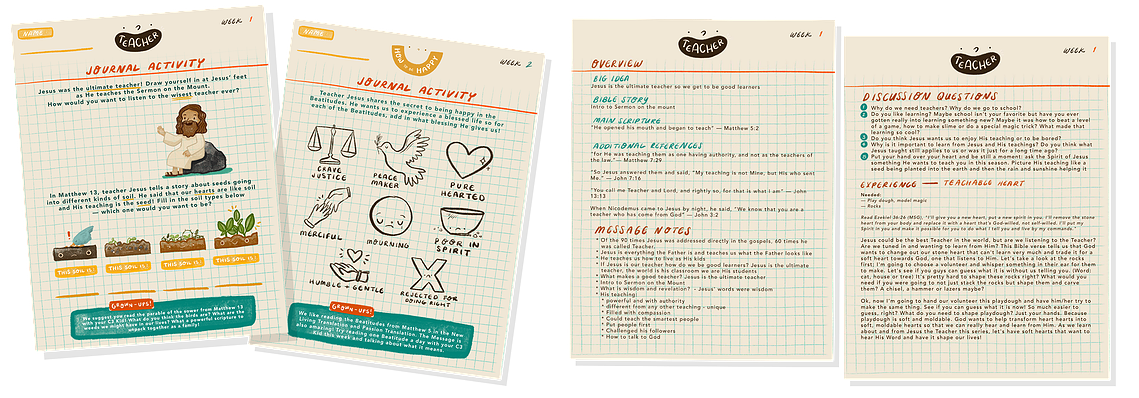 NAME
TEACHER
WEEK 1
JOURNAL ACTIVITY
Jesus was the ultimate teacher! Draw yourself in at Jesus' feet
as He teaches the Sermon on the Mount.
How would you want to listen to the wisest teacher ever?
In Matthew 13, teacher Jesus tells a story about seeds going
into different kinds of soil. He said that our hearts are like soil
and His teaching is the seed! Fill in the soil types below
— which one would you want to be?
THIS SOIL IS:
THIS SOIL IS:
THIS SOIL IS:
THIS SOIL IS:
GROWN-UPS!
We suggest you read the parable of the sower from Matthew 13
with your C3 Kid! What do you think the birds are? What are the
weeds we might have in our lives? What a powerful scripture to
unpack together as a family!
NAME
HOW TO BE HAPPY
WEEK 2
JOURNAL ACTIVITY
Teacher Jesus shares the secret to being happy in the
Beatitudes. He wants us to experience a blessed life so for
each of the Beatitudes, add in what blessing He gives us!
CRAVE
JUSTICE
PEACE
MAKER
PURE
HEARTED
MERCIFUL
MOURNING
POOR IN
SPIRIT
HUMBLE + GENTLE
REJECTED FOR
DOING RIGHT
GROWN-UPS!
We like reading the Beatitudes from Matthew 5 in the New
Living Translation and Passion Translation. The Message is
also amazing! Try reading one Beatitude a day with your C3
Kid this week and talking about what it means.
TEACHER
WEEK 1
OVERVIEW
BIG IDEA
Jesus is the ultimate teacher so we get to be good learners
BIBLE STORY
Intro to Sermon on the mount
MAIN SCRIPTURE
"He opened his mouth and began to teach" — Matthew 5:2
ADDITIONAL REFERENCES
"for He was teaching them as one having authority, and not as the teachers of
the law."— Matthew 7:29
"So Jesus answered them and said, "My teaching is not Mine, but His who sent
Me." — John 7:16
"You call me Teacher and Lord, and rightly so, for that is what I am" — John
13:13
When Nicodemus came to Jesus by night, he said, "We know that you are a
teacher who has come from God" — John 3:2
MESSAGE NOTES
* Of the 90 times Jesus was addressed directly in the gospels, 60 times he
was called Teacher.
* Jesus is everything the Father is and teaches us what the Father looks like
* He teaches us how to live as His kids
* If Jesus is our teacher how do we be good learners? Jesus is the ultimate
teacher, the world is his classroom we are His students
* What makes a good teacher? Jesus is the ultimate teacher
* Intro to Sermon on the Mount
* What is wisdom and revelation? - Jesus' words were wisdom
* His teaching:
* powerful and with authority
* different from any other teaching - unique
* Filled with compassion
* Could teach the smartest people
* Put people first
* Challenged his followers
* How to talk to God
TEACHER
WEEK 1
DISCUSSION QUESTIONS
1 Why do we need teachers? Why do we go to school?
2 Do you like learning? Maybe school isn't your favorite but have you ever
gotten really into learning something new? Maybe it was how to beat a level
of a game, how to make slime or do a special magic trick? What made that
learning so cool?
3 Do you think Jesus wants us to enjoy His teaching or to be bored?
4 Why is it important to learn from Jesus and His teachings? Do you think what
Jesus taught still applies to us or was it just for a long time ago?
Put your hand over your heart and be still a moment: ask the Spirit of Jesus
something He wants to teach you in this season. Picture His teaching like a
seed being planted into the earth and then the rain and sunshine helping it
EXPERIENCE — TEACHABLE HEART
Needed:
— Play dough, model magic
— Rocks
Read Ezekiel 36:26 (MSG), "I'll give you a new heart, put a new spirit in you. I'll remove the stone
heart from your body and replace it with a heart that's God-willed, not self-willed. I'll put my
Spirit in you and make it possible for you to do what I tell you and live by my commands."
Jesus could be the best Teacher in the world, but are we listening to the Teacher?
Are we tuned in and wanting to learn from Him? This Bible verse tells us that God
wants to change out our stone heart that can't learn very much and trade it for a
soft heart towards God, one that listens to Him. Let's take a look at the rocks
first; I'm going to choose a volunteer and whisper something in their ear for them
to make. Let's see if you guys can guess what it is without us telling you. (Word:
cat, house or tree) It's pretty hard to shape these rocks right? What would you
need if you were going to not just stack the rocks but shape them and carve
them? A chisel, a hammer or lazers maybe?
Ok, now I'm going to hand our volunteer this playdough and have him/her try to
make the same thing. See if you can guess what it is now! So much easier to
guess, right? What do you need to shape playdough? Just your hands. Because
playdough is soft and moldable. God wants to help transform heart hearts into
soft, moldable hearts so that we can really hear and learn from Him. As we learn
about and from Jesus the Teacher this series, let's have soft hearts that want to
hear His Word and have it shape our lives!